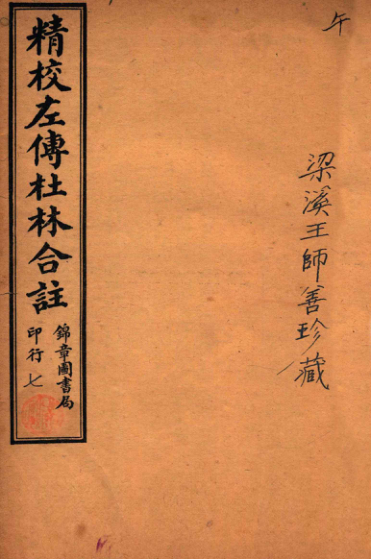 午
梁溪王師善珍藏
精校左傳杜林合註
錦章圖書局
印行 七